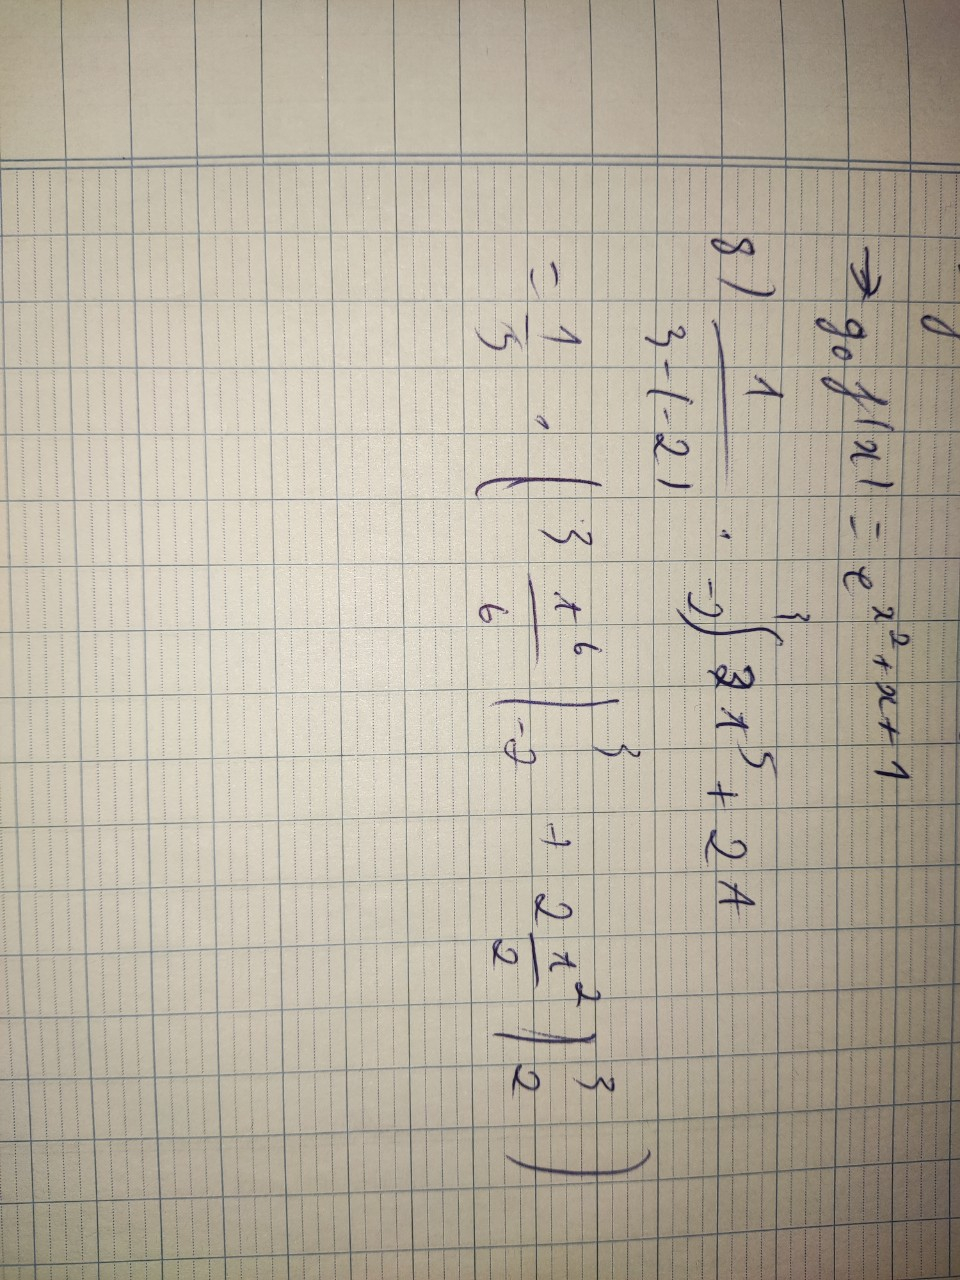 → gof(x) = e^{x²+x+1}
8) \frac{1}{3-(-2)} . ₋₂∫³ 3x⁵ + 2x
= \frac{1}{5} . ( 3 \frac{x⁶}{6} |₋₂³ + 2 \frac{x²}{2} |₂³ )